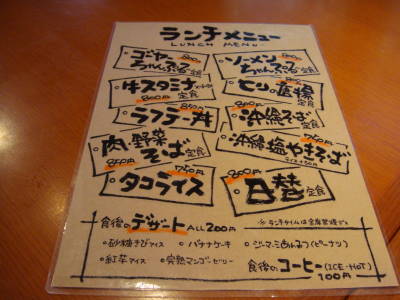 ランチメニュー
LUNCH MENU
ゴーヤー
ちゃんぷる定食
ソーメン
ちゃんぷる定食
牛スタミナ
定食
定食
800円
850円
ラフテー丼
800円
沖縄そば
定食
肉野菜
そば定食
850円
750円
沖縄塩やきそば
750円
タコライス
800円
日替定食
食後のデザート ALL 200円
※ランチタイムは全席禁煙です
・砂糖きびアイス ・バナナケーキ ・ジーマーミ(ピーナツ)
・紅芋アイス ・完熟マンゴーゼリー
食後のコーヒー(ICE・HOT)
100円